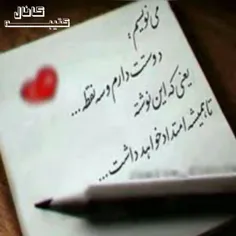 کانال
کتیبه
می نویسم؛
دوستت دارم و سه نقطه...
یعنی که این نوشته
تا همیشه امتداد خواهد داشت...